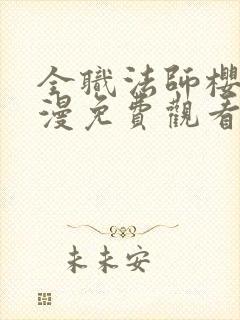 全職法師櫻
漫免費觀看
未未安